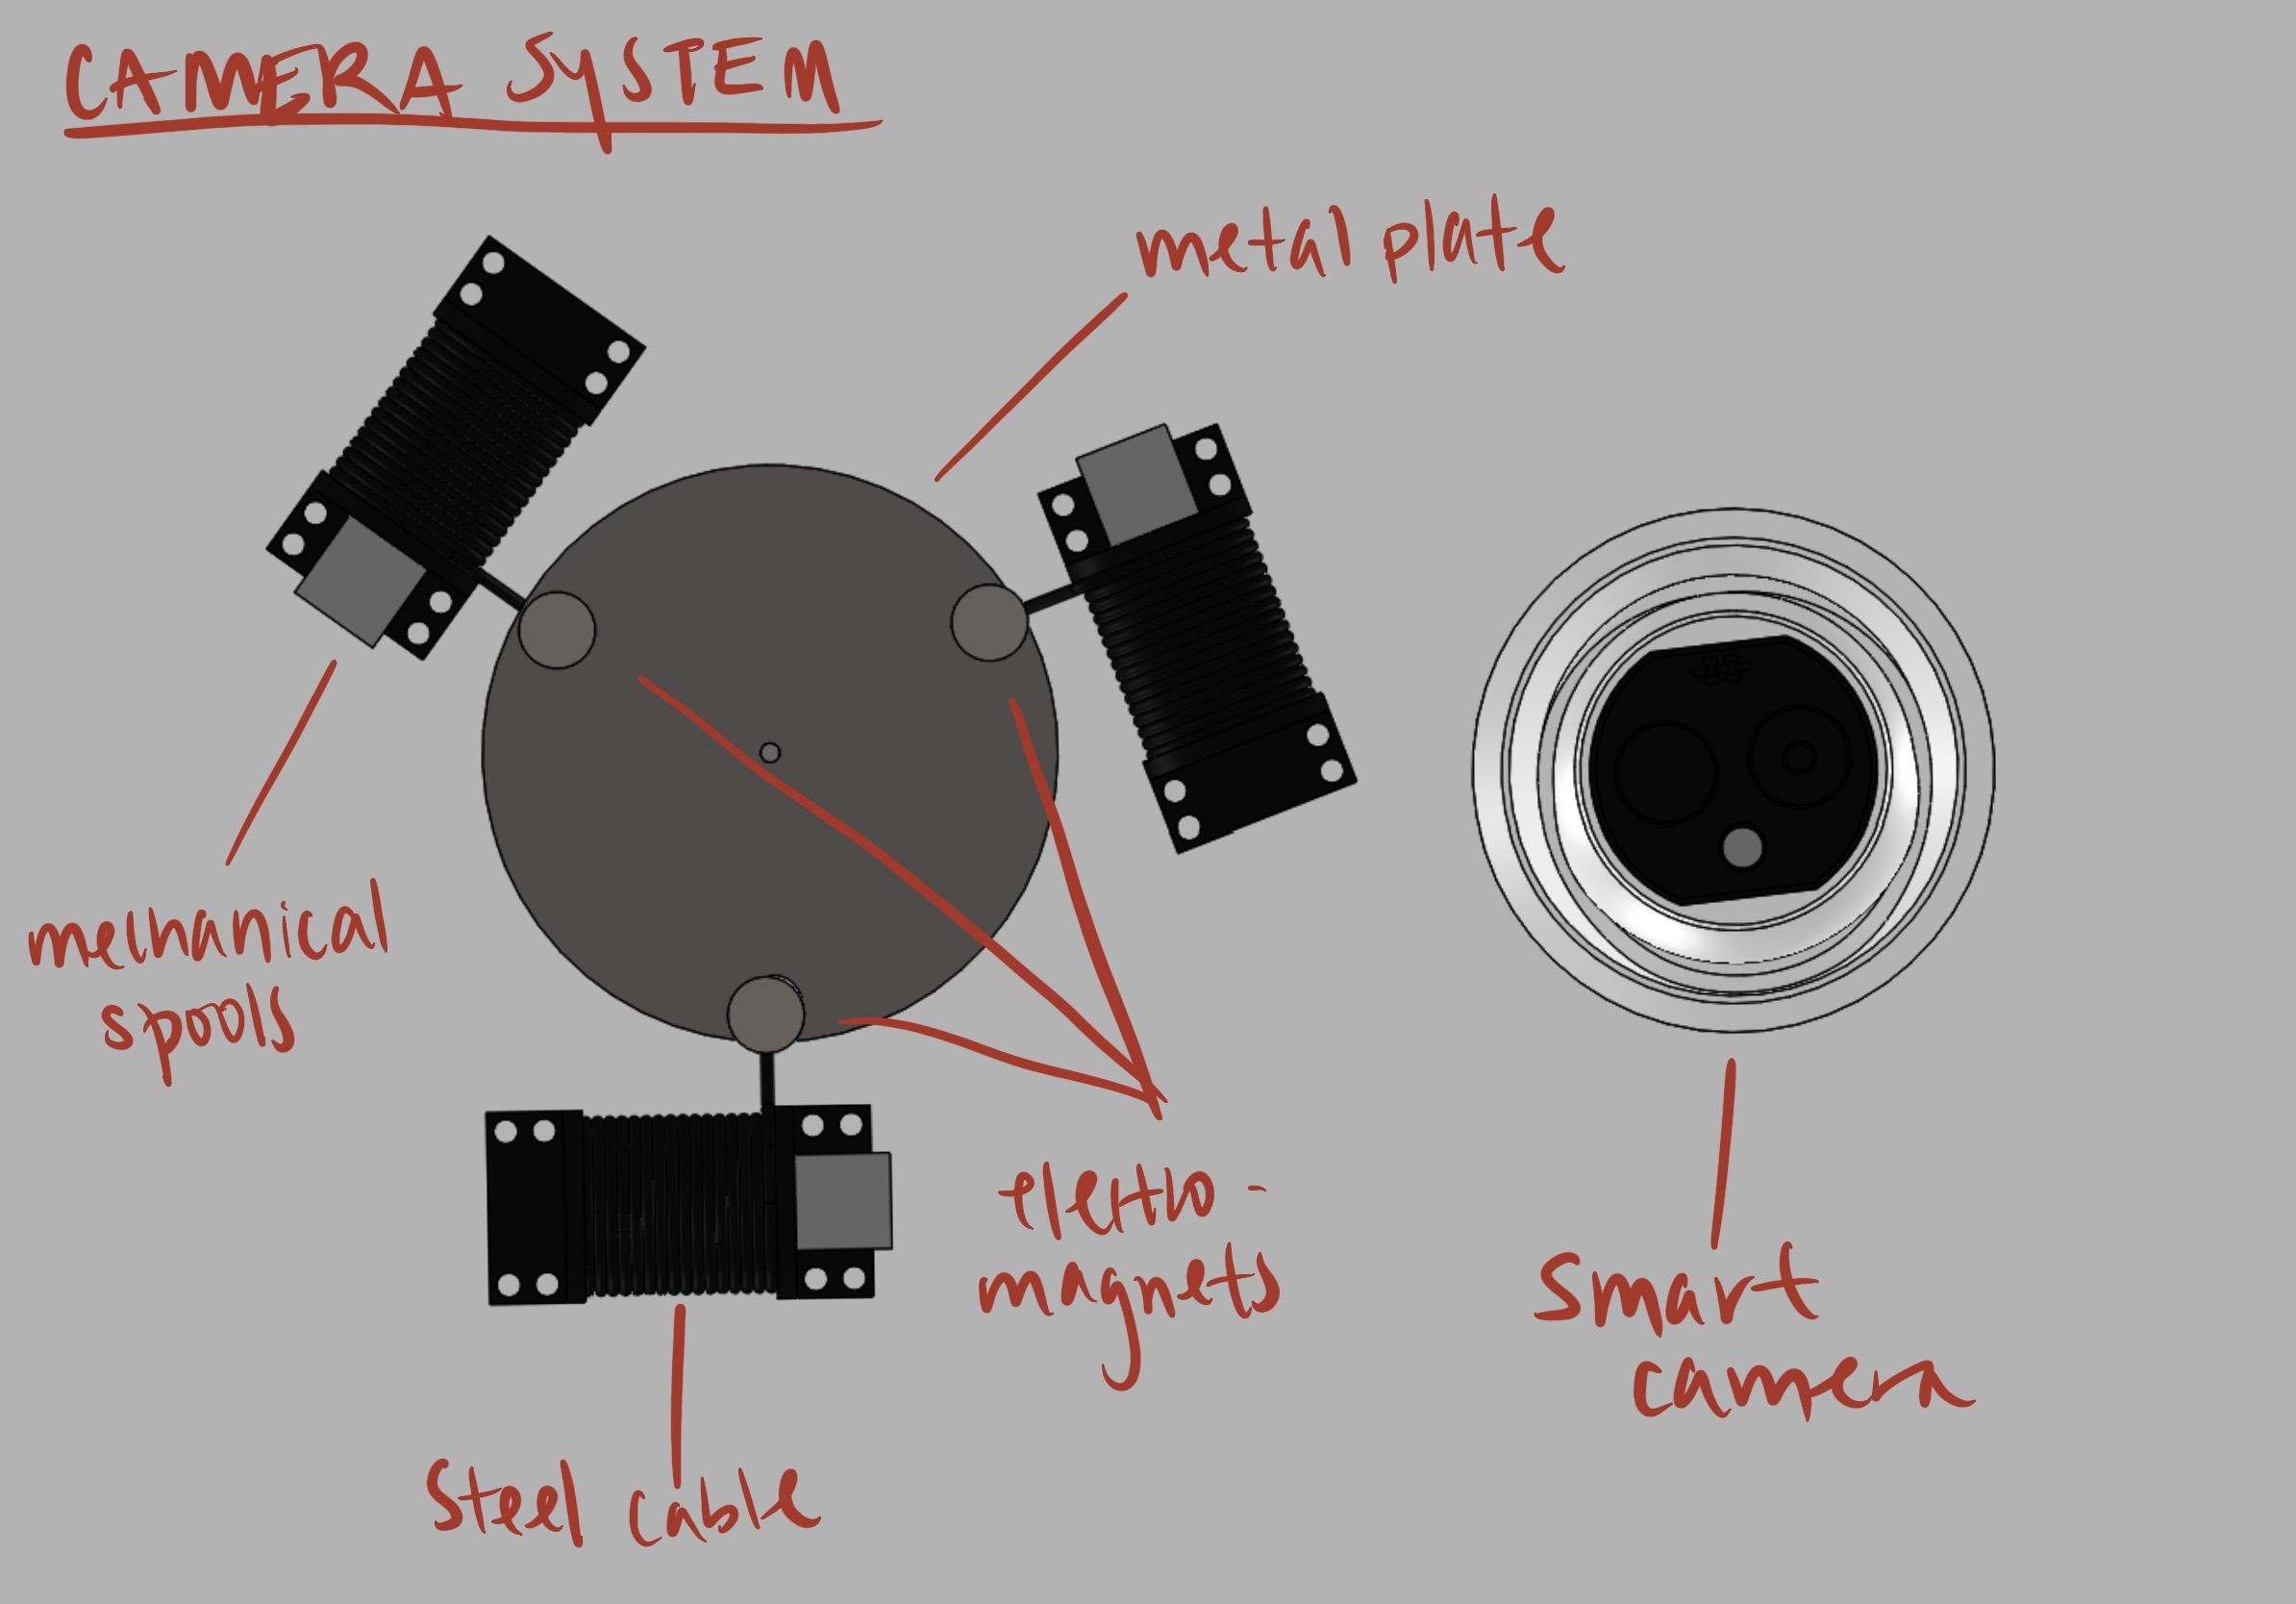 CAMERA SYSTEM
metal plate
mechanical
spools
electro-
magnets
smart
camera
Steel cable